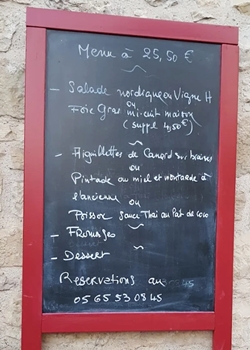 Menu à 25,50 €
- Salade nordique ou Vigne H
ou
Foie Gras mi-cuit maison
(suppl 4,50€)
- Aiguillettes de Canard
ou
Pintade au miel et moutarde à
l'ancienne ou
Poisson Sauce Thaï au lait de coco
- Fromages
- Dessert
Reservations au
05 65 53 08 45